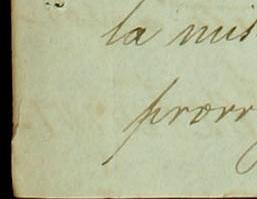 la mis
prorr